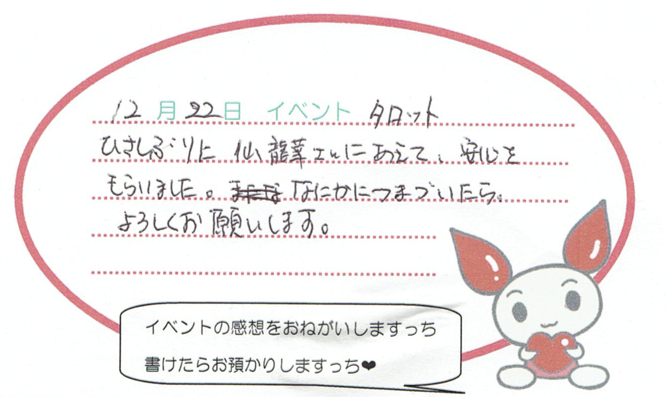 12月22日 イベント タロット
ひさしぶりに 仙龍華さんにあえて、安心を
もらいました。なにかにつまづいたら、
よろしくお願いします。
イベントの感想をおねがいしますっち
書けたらお預かりしますっち❤